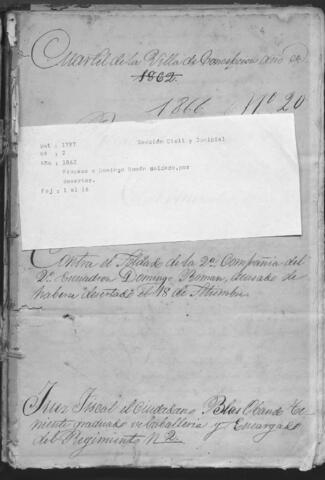 Cuartel de la Villa de Concepcion año de
1862
1866 Nº 20
Vol : 1797 Sección Civil y Judicial
Nº : 2
Año : 1862
Proceso a Domingo Román soldado, por
desertor.
Foj : 1 al 16
Contra el Soldado de la 2ª Compañia del
2º Escuadron Domingo Roman, acusado de
haber desertado el 18 de Setiembre
Juez Fiscal el Ciudadano Blas Obando Te-
niente graduado de Caballeria y Encargado
del Regimiento N 2